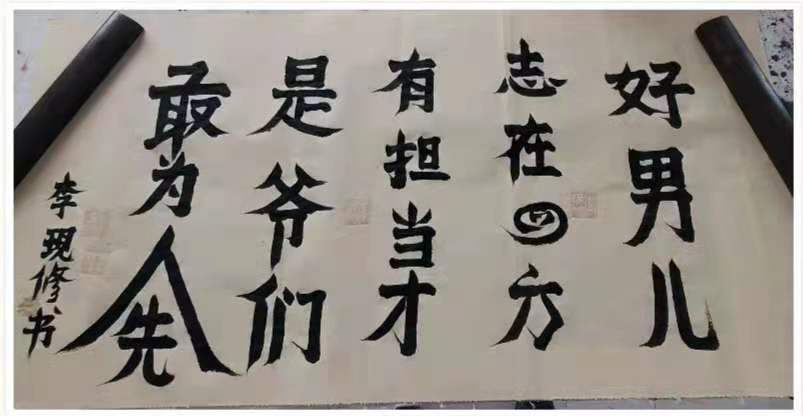 好男儿
志在四方
有担当才
是爷们
敢为人先
李现修书